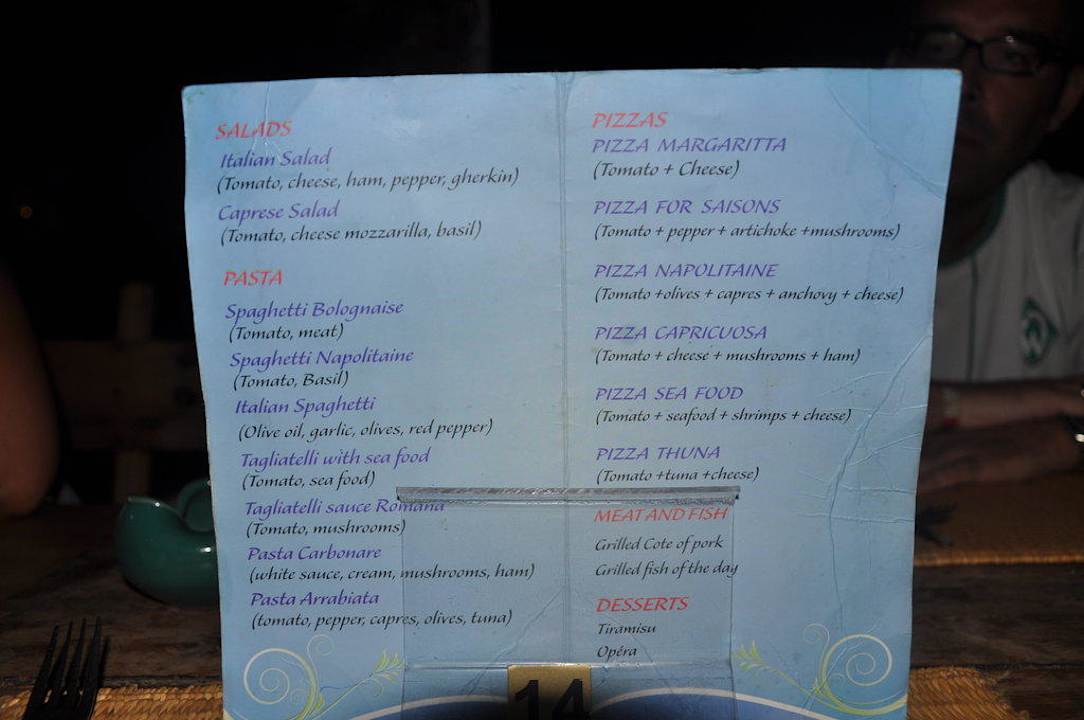 SALADS
Italian Salad
(Tomato, cheese, ham, pepper, gherkin)
Caprese Salad
(Tomato, cheese mozzarilla, basil)
PASTA
Spaghetti Bolognaise
(Tomato, meat)
Spaghetti Napolitaine
(Tomato, Basil)
Italian Spaghetti
(Olive oil, garlic, olives, red pepper)
Tagliatelli with sea food
(Tomato, sea food)
Tagliatelli sauce Romana
(Tomato, mushrooms)
Pasta Carbonare
(white sauce, cream, mushrooms, ham)
Pasta Arrabiata
(tomato, pepper, capres, olives, tuna)
PIZZAS
PIZZA MARGARITTA
(Tomato + Cheese)
PIZZA FOR SAISONS
(Tomato + pepper + artichoke +mushrooms)
PIZZA NAPOLITAINE
(Tomato +olives + capres + anchovy + cheese)
PIZZA CAPRICUOSA
(Tomato + cheese + mushrooms + ham)
PIZZA SEA FOOD
(Tomato + seafood + shrimps + cheese)
PIZZA THUNA
(Tomato +tuna +cheese)
MEAT AND FISH
Grilled Cote of pork
Grilled fish of the day
DESSERTS
Tiramisu
Opéra
14